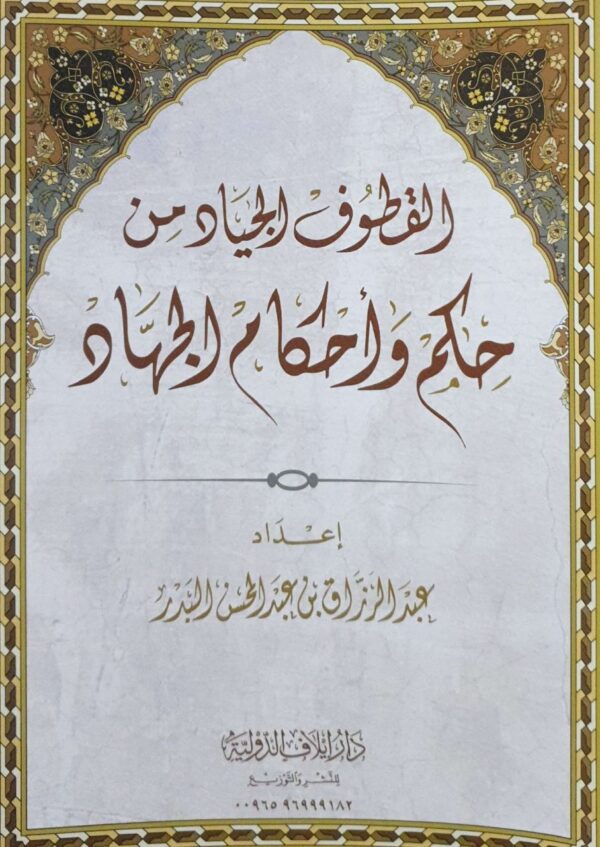 القطوف الجياد من
حِكَمْ وَأَحْكَامِ الْجِهَاد
إعْدَاد
عبد الرزاق بن عبد المحسن البدر
دار إيلاف الدولية
للنشر والتوزيع
٠٠٩٦٥ ٩٦٩٩٩١٨٢